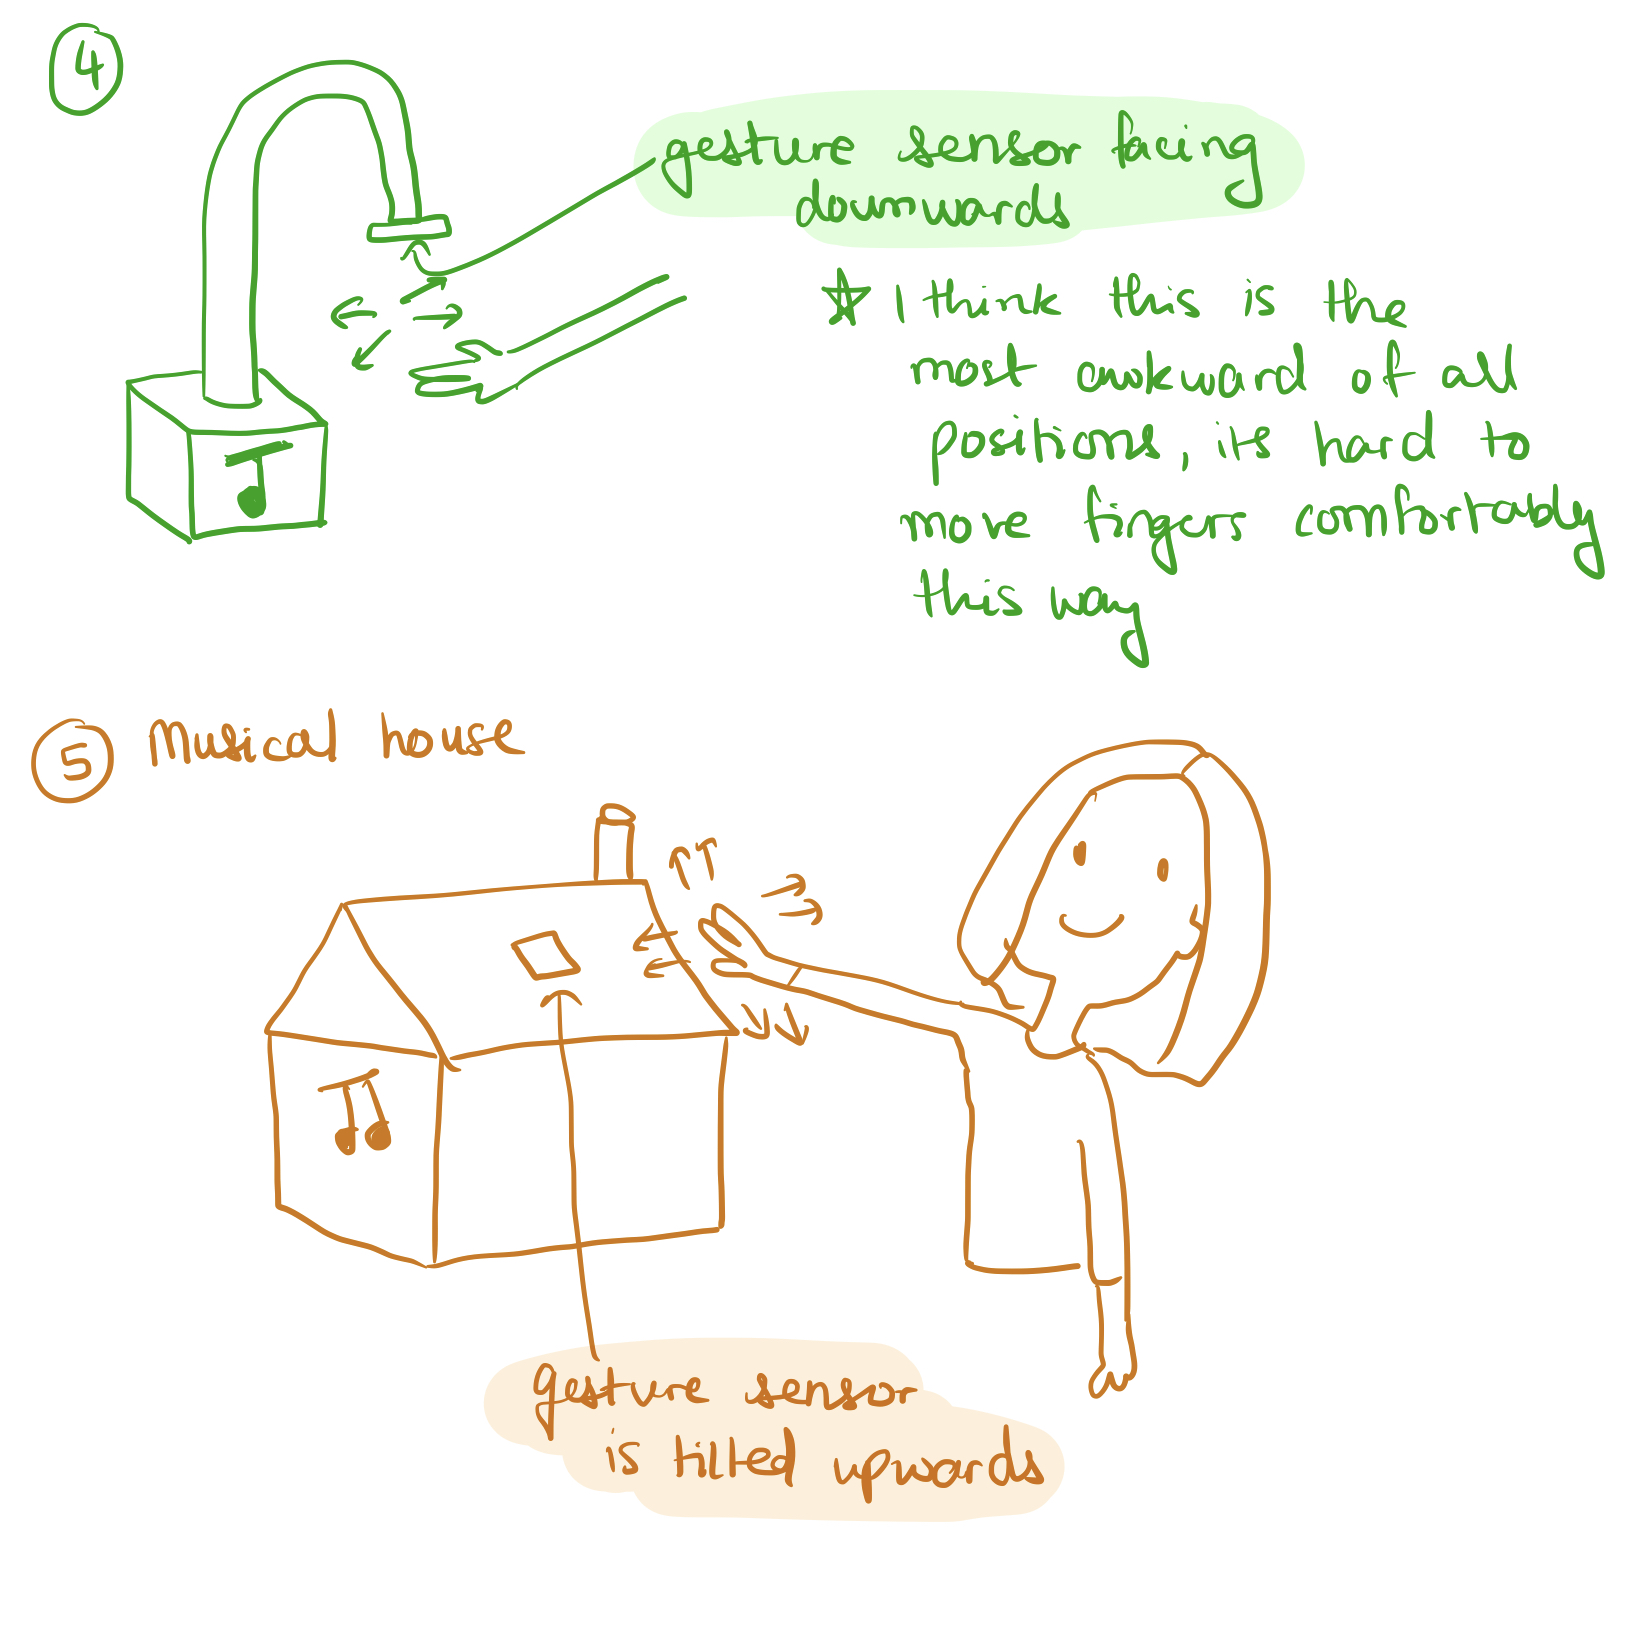 4
gesture sensor facing
downwards
☆ I think this is the
most awkward of all
positions, its hard to
move fingers comfortably
this way
5 Musical house
gesture sensor
is tilted upwards